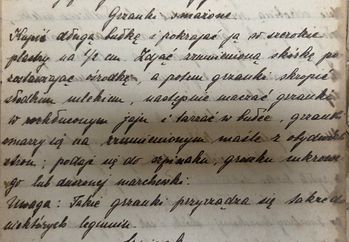 Grzanki smażone
Kupić długą bułkę i pokrajać ją w szerokie
plastry na ½ cm. Zdjąć zrumienioną skórkę po
zostawiając ośrodkę, a potem grzanki skropić
słodkim mlekiem, następnie maczać grzanki
w rozkłóconem jaju i tarzać w bułce, grzanki
smarzy się na zrumienionym maśle z obydwóch
stron; podaje się do szpinaku, groszku cukrowe-
go lub duszonej marchewki.
Uwaga: Takie grzanki przyrządza się także do
niektórych legumin.